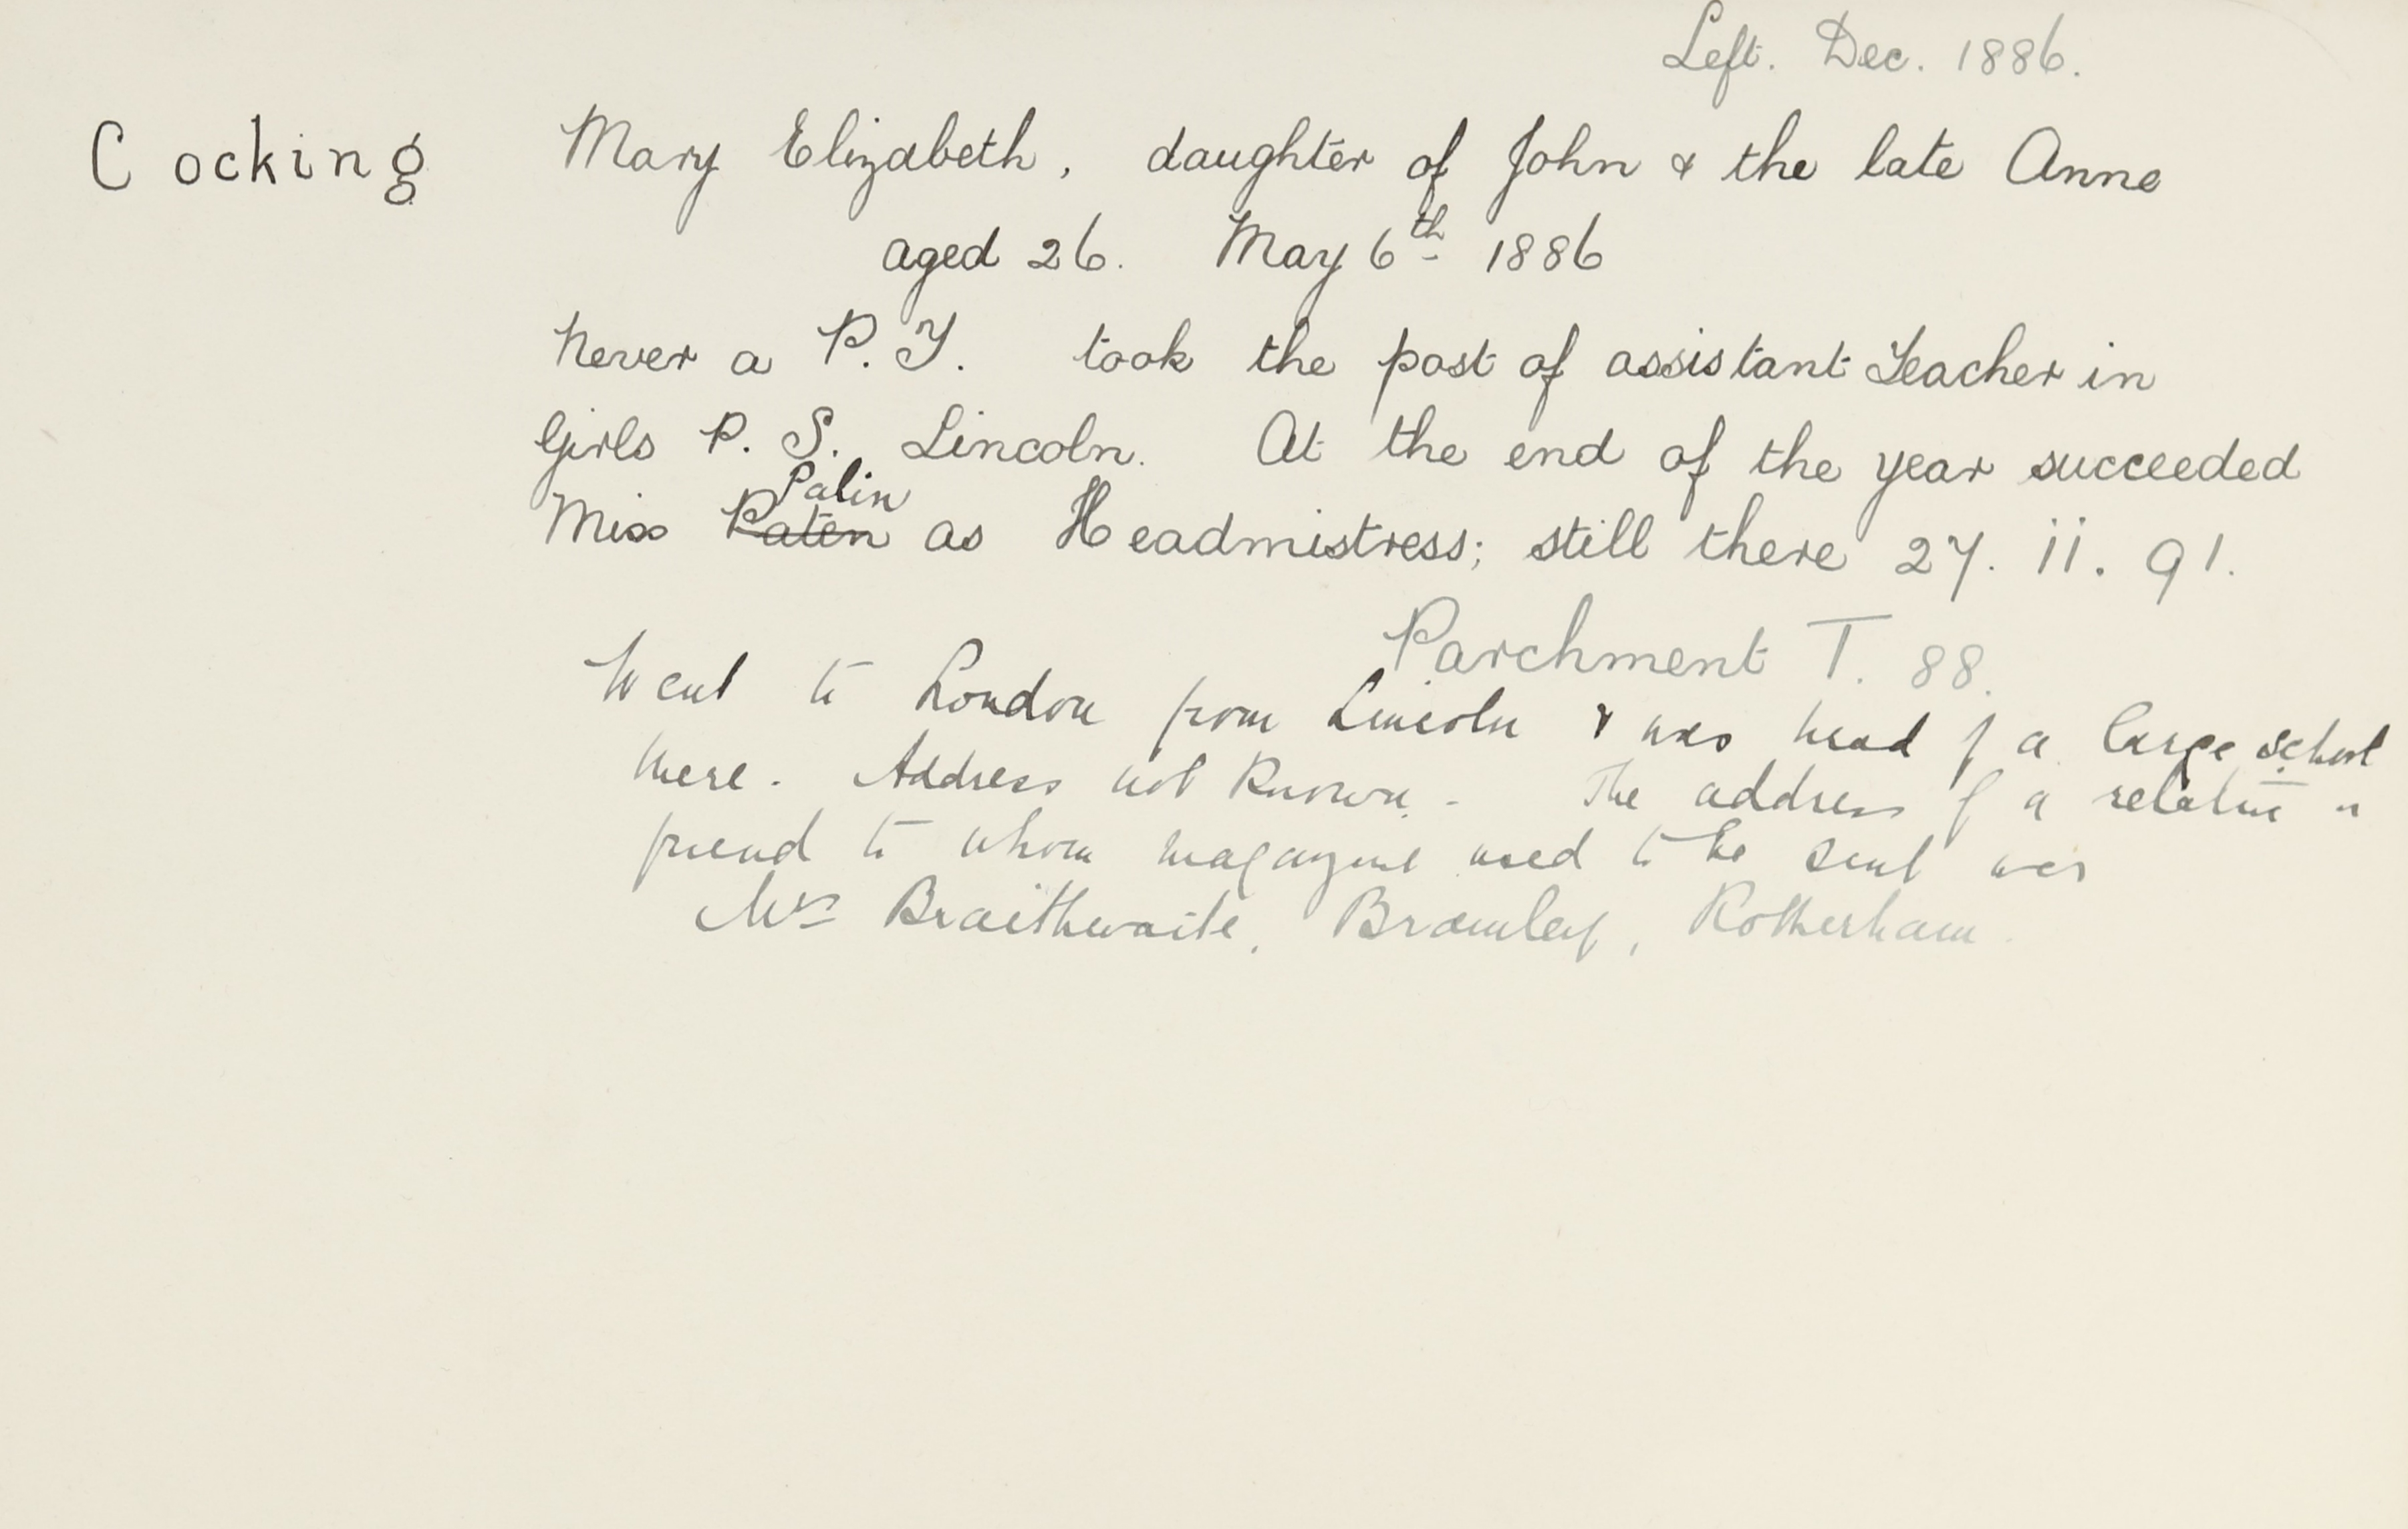 Left. Dec. 1886.
Cocking Mary Elizabeth, daughter of John & the late Anne
aged 26. May 6th 1886
Never a P.T. took the post of assistant Teacher in
Girls P. S. Lincoln. At the end of the year succeeded
Palin
Miss Paten as Headmistress; still there 27. ii. 91.
Parchment T. 88.
Went to London from Lincoln & was head of a large school
there. Address not known. - The address of a relative or
friend to whom magazine used to be sent was
Mrs Braithwaite, Bramley, Rotherham.